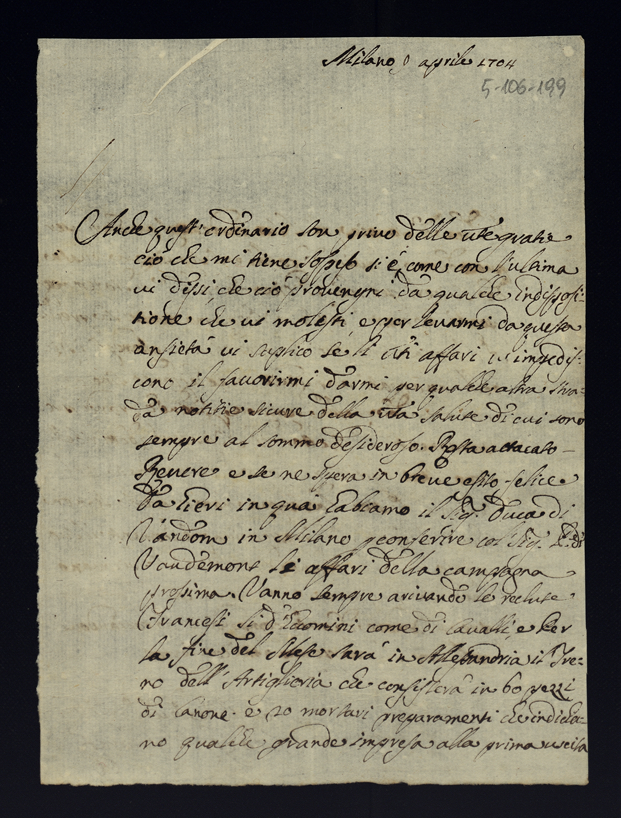 Milano aprile 1704
5-106-199
Anche quest'ordinario son privo delle vrē gratie
ciò che mi tiene sospeso si è come con l'ultima
vi dissi, che ciò provenghi da qualche indisposi-
tione che vi molesti, e per levarmi da questa
ansietà vi suplico se li affari v'impedis-
cono il favorirmi darmi per qualle altra stra-
da notitie sicure della salute di cui sono
sempre al sommo desideroso. Resta attacato
Revere e se ne spera in breve esito felice
Da lieri in qua habiamo il Sig. Duca di
Vandom in Milano p conferire col Sig. P. di
Vaudemont li affari della campagna
prossima. Vanno sempre arivando le reclute
Francesi si d'Uomini come di Cavalli, e per
la fine del Mese sarà in Allesandria il Tre-
no dell'Artiglieria che consisterà in 60 pezzi
di Canone e 20 mortari preparamenti che indicha-
no qualche grande impresa alla prima uscita